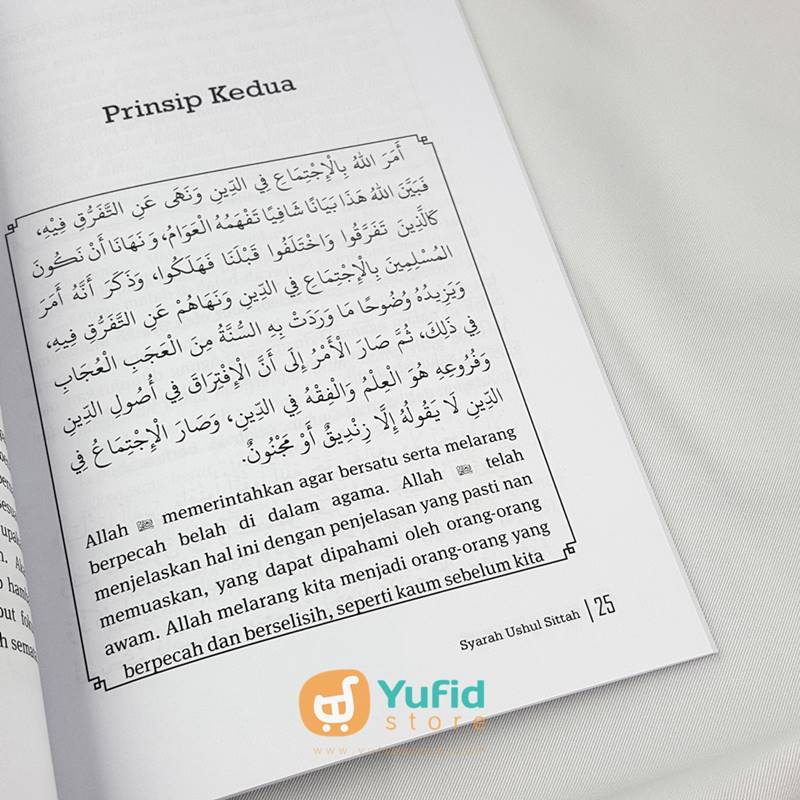 Prinsip Kedua
أَمَرَ اللهُ بِالْإِجْتِمَاعِ فِي الدِّينِ وَنَهَى عَنِ التَّفَرُّقِ فِيْهِ،
فَبَيَّنَ اللهُ هَذَا بَيَانًا شَافِيًا تَفْهَمُهُ الْعَوَامُ، وَنَهَانَا أَنْ نَكُونَ
كَالَّذِينَ تَفَرَّقُوا وَاخْتَلَفُوا قَبْلَنَا فَهَلَكُوا، وَذَكَرَ أَنَّهُ أَمَرَ
الْمُسْلِمِينَ بِالْإِجْتِمَاعِ فِي الدِّينِ وَنَهَاهُمْ عَنِ التَّفَرُّقِ فِيهِ،
وَيَزِيدُهُ وُضُوحًا مَا وَرَدَتْ بِهِ السُّنَّةُ مِنَ الْعَجَبِ الْعُجَابِ
فِي ذَلِكَ، ثُمَّ صَارَ الْأَمْرُ إِلَى أَنَّ الْإِفْتِرَاقَ فِي أُصُولِ الدِّينِ
وَفُرُوعِهِ هُوَ الْعِلْمُ وَالْفِقْهُ فِي الدِّينِ، وَصَارَ الْإِجْتِمَاعُ فِي
الدِّينِ لَا يَقُولُهُ إِلَّا زِنْدِيقٌ أَوْ مَجْنُونٌ.
Allah ﷻ memerintahkan agar bersatu serta melarang
berpecah belah di dalam agama. Allah ﷻ telah
menjelaskan hal ini dengan penjelasan yang pasti nan
memuaskan, yang dapat dipahami oleh orang-orang
awam. Allah melarang kita menjadi orang-orang yang
berpecah dan berselisih, seperti kaum sebelum kita
Syarah Ushul Sittah | 25
Yufid
store